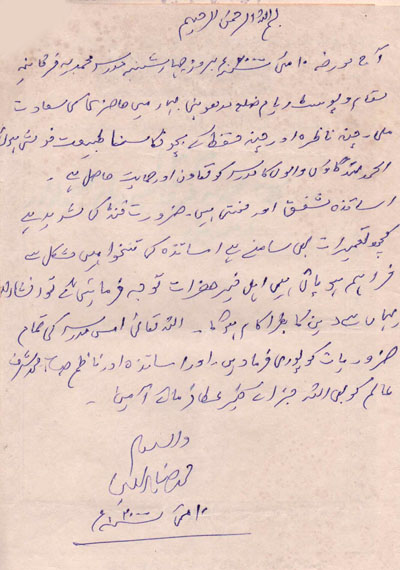 بسم اللہ الرحمن الرحیم
آج مورخہ ۱۰ مئی بروز چہارشنبہ مدرسہ محمدیہ فرقانیہ
بمقام و پوسٹ ضلع مدھوبنی بہار میں حاضری کی سعادت
ملی۔ چند ناظرہ اور چند حفظ کے بچوں کا سنا طبیعت خوش ہوئی
الحمد للہ گاؤں والوں کا مدرسہ کو تعاون اور حمایت حاصل ہے۔
اساتذہ شفیق اور محنتی ہیں۔ ضرورت فنڈ کی شدید ہے
کچھ تعمیرات بھی سامنے ہے اساتذہ کی تنخواہیں مشکل سے
فراہم ہو پاتی ہیں اہل خیر حضرات توجہ فرمائیں گے تو انشاءاللہ
یہاں سے دین کا بڑا کام ہوگا۔ اللہ تعالیٰ اس مدرسہ کی تمام
ضروریات کو پوری فرمادیں۔ اور اساتذہ اور ناظم صاحب محمد شرف
عالم کو بھی اللہ جزائے خیر عطا فرمائے آمین۔
والسلام
محمد
۱۰ مئی